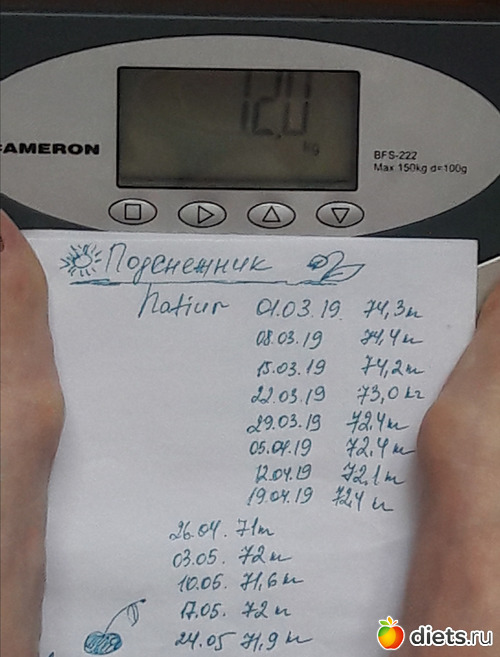 72,0
kg
CAMERON
BFS-222
Max 150kg d=100g
Подснежник
Natiur 01.03.19 74,3 кг
08.03.19 74,4 кг
15.03.19 74,2 кг
22.03.19 73,0 кг
29.03.19 72,4 кг
05.04.19 72,4 кг
12.04.19 72,1 кг
19.04.19 72,4 кг
26.04. 71 кг
03.05. 72 кг
10.05. 71,6 кг
17.05. 72 кг
24.05 71,9 кг
diets.ru